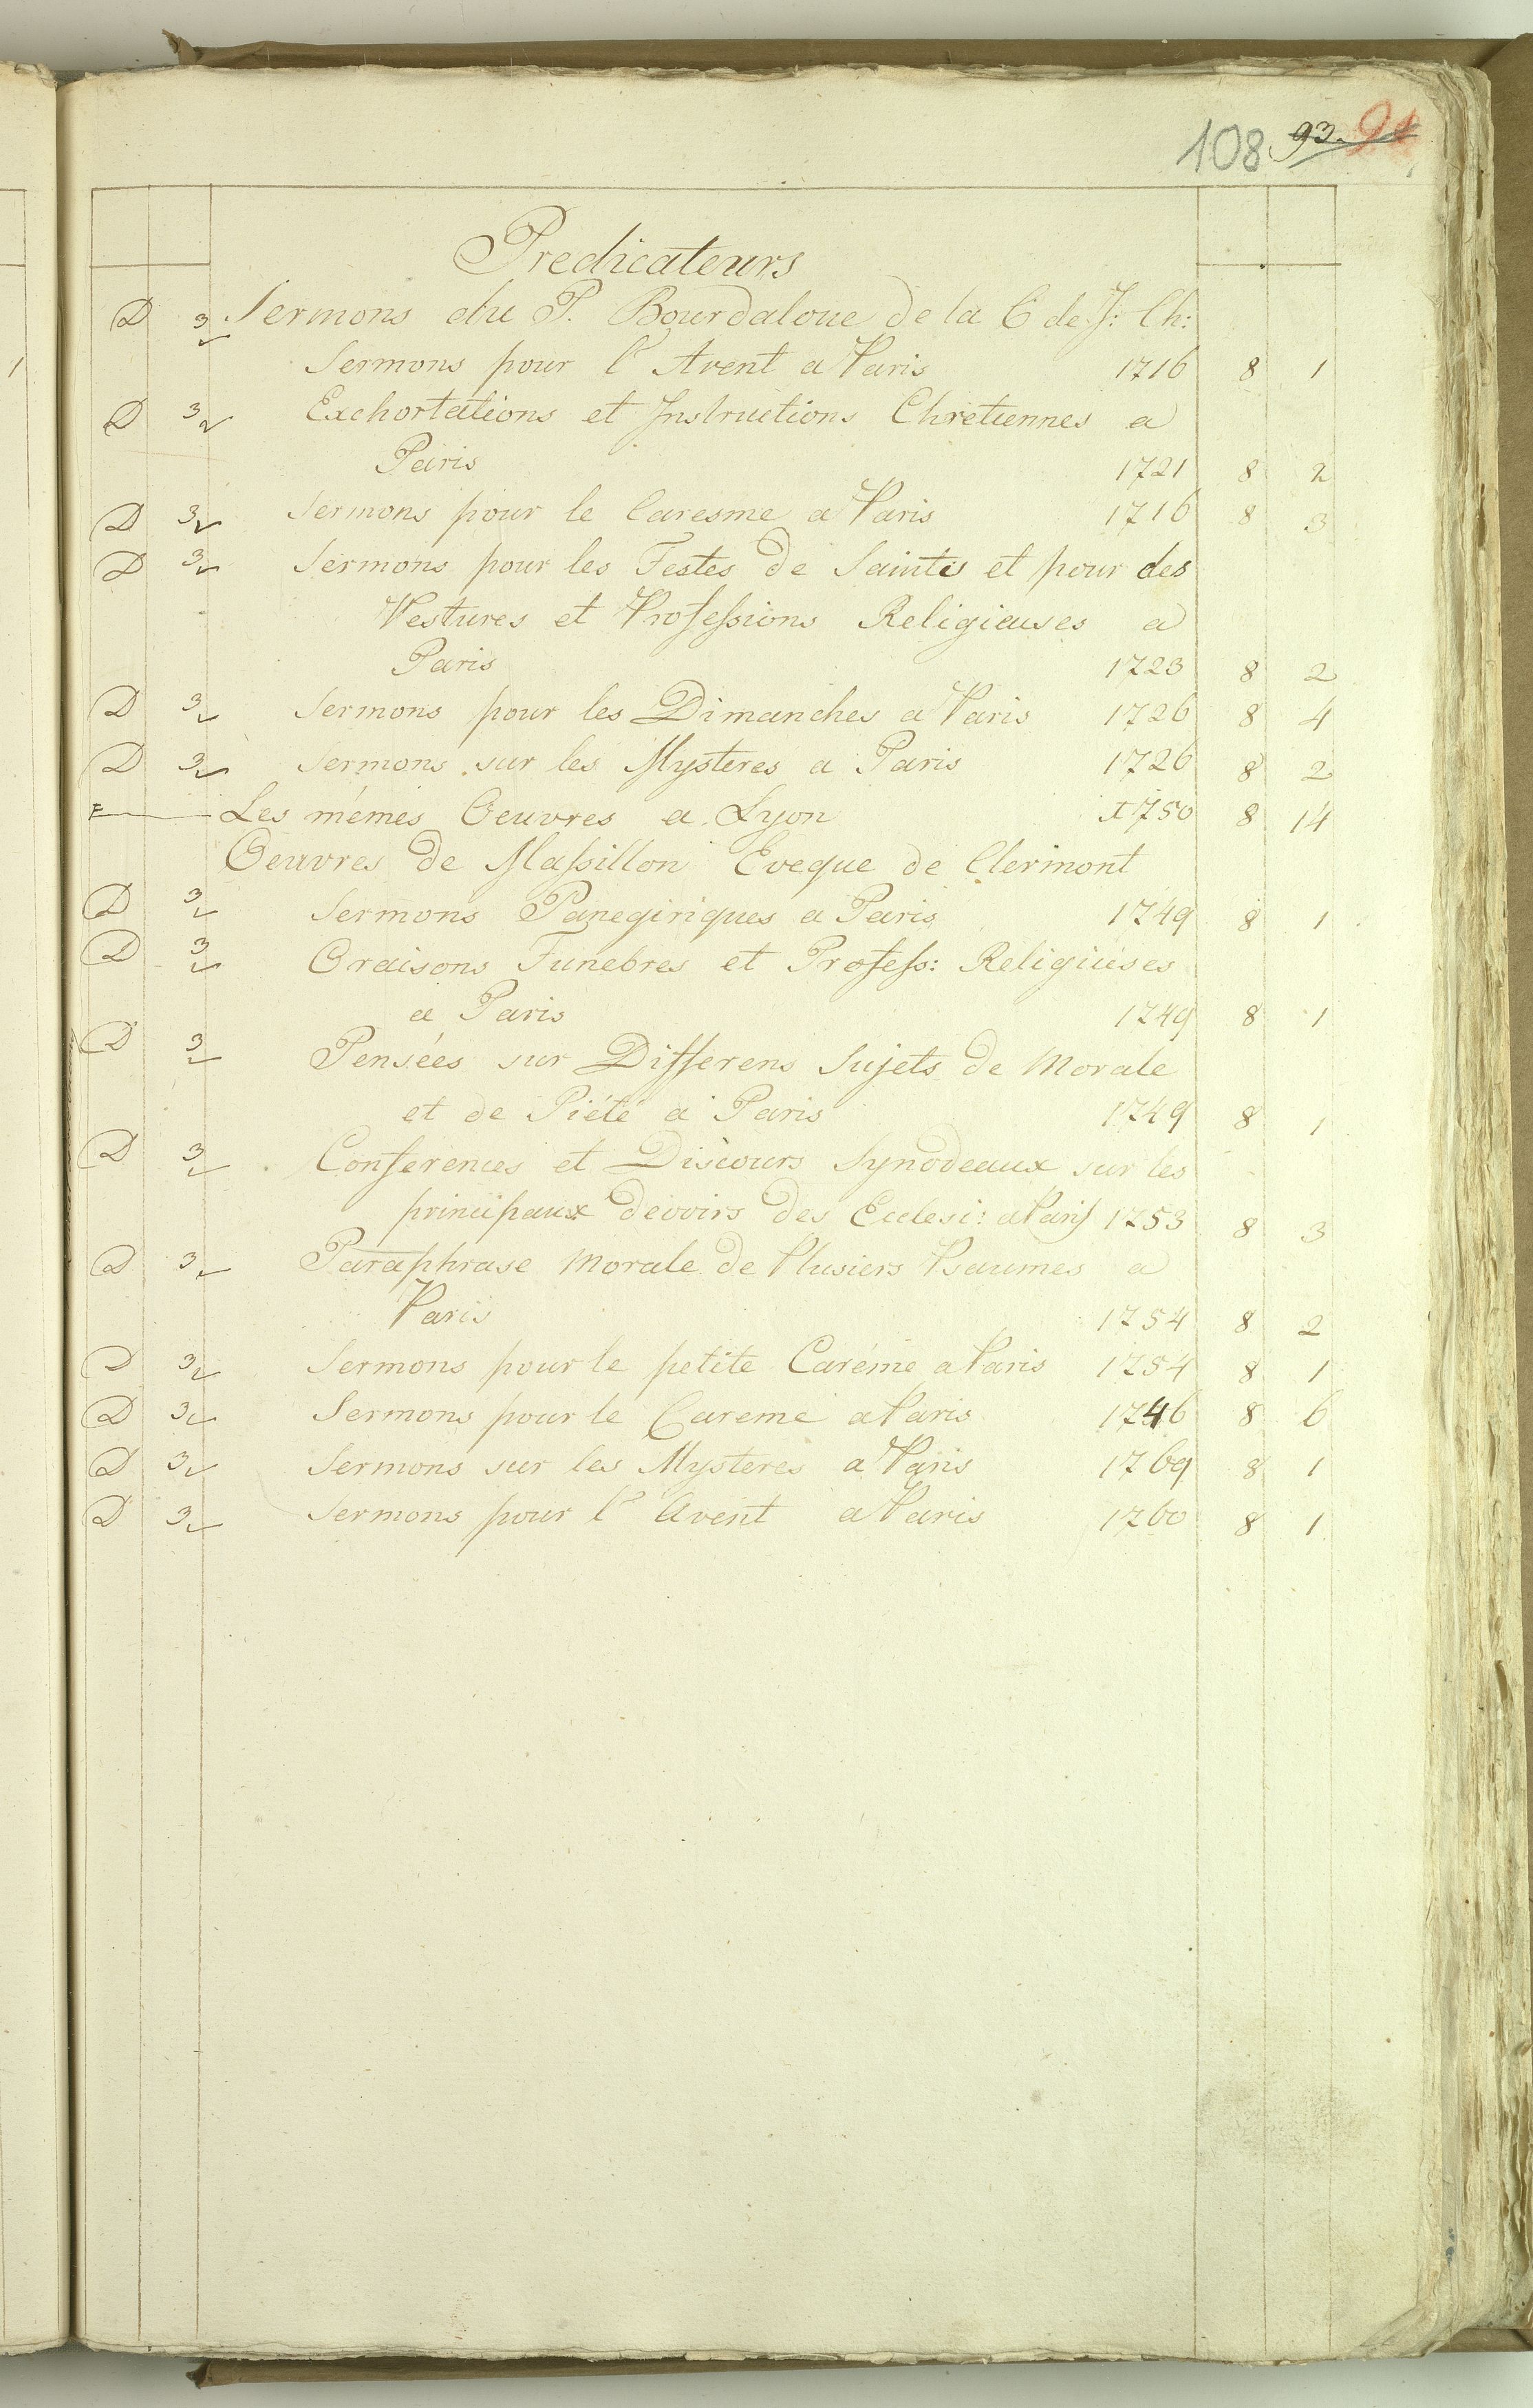 108 93. 94
Predicateurs
D 3 Sermons du P. Bourdaloue de la C de J: Ch:
1 Sermons pour l'Avent a Paris 1716 8 1
D 3 Exchortations et Instructions Chretiennes a
Paris 1721 8 2
D 3 Sermons pour le Caresme a Paris 1716 8 3
D 3 Sermons pour les Festes de Saintes et pour des
Vestures et Professions Religieuses a
Paris 1723 8 2
D 3 Sermons pour les Dimanches a Paris 1726 8 4
D 3 Sermons sur les Mysteres a Paris 1726 8 2
Les mémes Oeuvres a Lyon 1750 8 14
Oeuvres de Massillon Eveque de Clermont
D 3 Sermons Panegiriques a Paris 1749 8 1
D 3 Oraisons Funebres et Profess: Religiuéses
a Paris 1749 8 1
D 3 Pensées sur Differens Sujets de Morale
et de Piété a Paris 1749 8 1
D 3 Conferences et Discours Synodeaux sur les
principaux devoirs des Ecclesi: a Paris 1753 8 3
D 3 Paraphrase Morale de Plusiers Psaumes a
Paris 1754 8 2
D 3 Sermons pour le petite Caréme a Paris 1754 8 1
D 3 Sermons pour le Careme a Paris 1746 8 6
D 3 Sermons sur les Mysteres a Paris 1769 8 1
D 3 Sermons pour l'Avent a Paris 1760 8 1